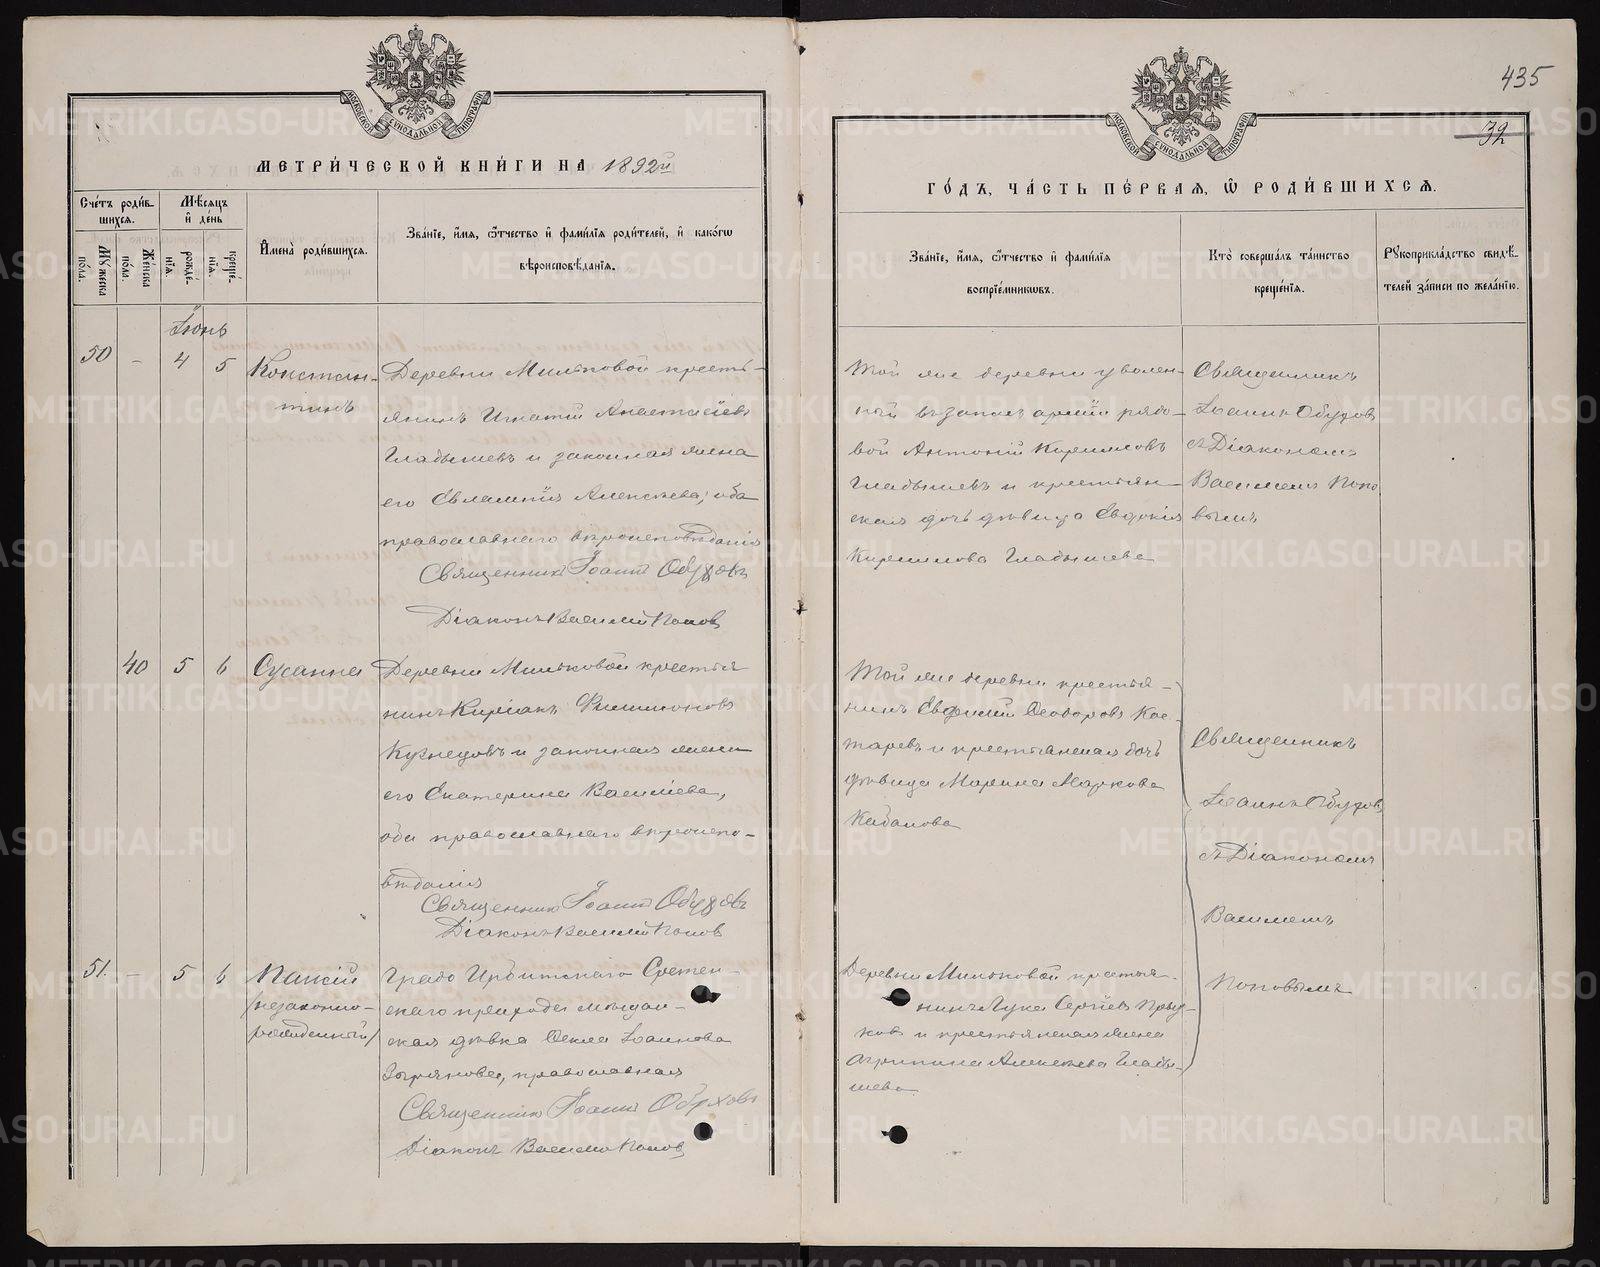 МОСКОВСКОЙ СѴНОДАЛЬНОЙ ТИПОГРАФИИ
МЕТРИ́ЧЕСКОЙ КНИ́ГИ НА 1892й
Сче́тъ роди́в-
шихсѧ.
Мꙋжеска по́ла.
Же́нска по́ла.
Мѣ́сѧцъ
и҆ де́нь
рожде́нїѧ.
креще́нїѧ.
И҆мена̀ роди́вшихсѧ.
Зва́нїе, и҆́мѧ, ѻ҆́тчество и҆ фами́лїѧ роди́телей, и҆ како́гѡ
вѣроисповѣ́данїѧ.
Іюнь
50 - 4 5
Констан-
тинъ
Деревни Мильковой кресть-
янинъ Игнатій
Гладышевъ и законная жена
его Евлампія Алексѣева, оба
православнаго вѣроисповѣданія
Священникъ Іоаннъ Обуховъ
Діаконъ Василій Поповъ
40 5 6
Сусанна
Деревни Мильковой крестья
нинъ Киріакъ Филимоновъ
Кузнецовъ и законная жена
его Екатерина Василіева,
оба православнаго вѣроиспо-
вѣданія
Священникъ Іоаннъ Обуховъ
Діаконъ Василій Поповъ
51. - 5 6
Паисій
/незаконно-
рожденный/
Града Ирбитскаго Сретен-
скаго прихода мѣщан-
ская дѣвка Ѳекла Іоаннова
Зырянова, православная
Священникъ Іоаннъ Обуховъ
Діаконъ Василій Поповъ
435
32
МОСКОВСКОЙ СѴНОДАЛЬНОЙ ТИПОГРАФИИ
ГО́ДЪ, ЧА́СТЬ ПЕ́РВАѦ, Ѡ҆ РОДИ́ВШИХСѦ.
Зва́нїе, и҆́мѧ, ѻ҆́тчество и҆ фами́лїѧ
воспрїе́мникѡвъ.
Кто̀ соверша́лъ та́инство
креще́нїѧ.
Рꙋкоприкла́дство свидѣ́-
телей за́писи по жела́нїю.
Той же деревни уволен-
ный въ запасъ арміи рядо-
вой Антоній Кириловъ
Гладышевъ и крестьян-
ская дочь дѣвица Евдокія
Кирилова Гладышева
Священникъ
Іоаннъ Обуховъ
съ Діакономъ
Василіемъ Попо
вымъ
Той же деревни крестья-
нинъ Евфимій Ѳеодоровъ Кос-
таревъ и крестьянская дочь
дѣвица Марина Маркова
Кабакова
Священникъ
Іоаннъ Обуховъ
съ Діакономъ
Василіемъ
Поповымъ
Деревни Мильковой крестья-
нинъ Лука Сергѣевъ
и крестьянская жена
Агрипина Алексѣева Глады-
шева